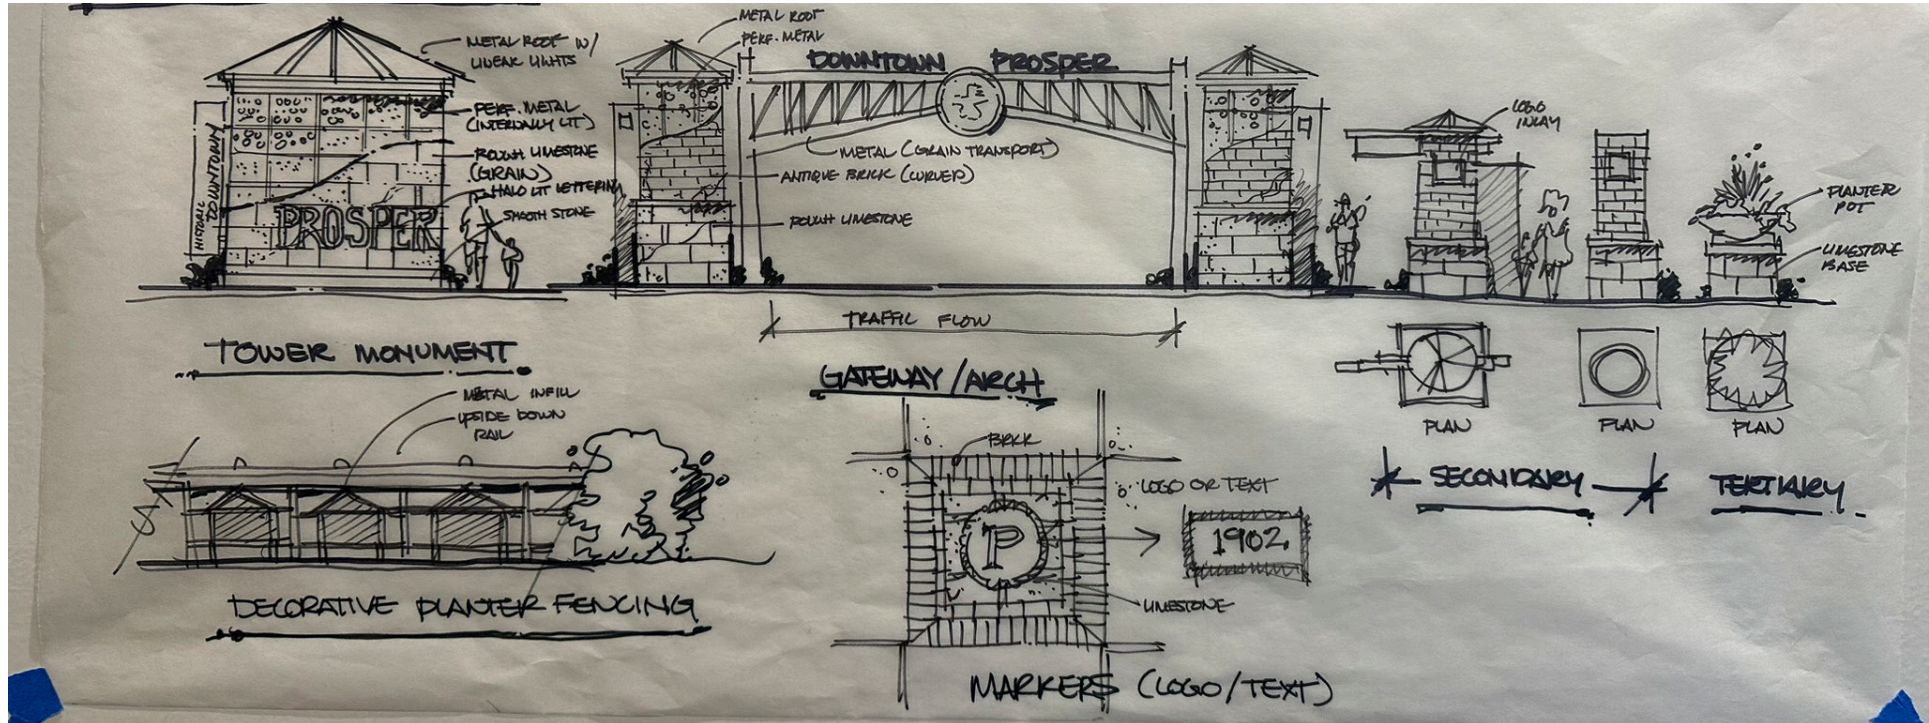 METAL ROOF W/
LINEAR LIGHTS
PERF. METAL
(INTERNALLY LIT)
ROUGH LIMESTONE
(GRAIN)
HALO LIT LETTERING
SMOOTH STONE
HISTORIC
DOWNTOWN
PROSPER
TOWER MONUMENT
METAL ROOF
PERF. METAL
DOWNTOWN PROSPER
METAL (GRAIN TRANSPORT)
ANTIQUE BRICK (CURVED)
ROUGH LIMESTONE
TRAFFIC FLOW
GATEWAY/ARCH
LOGO
INLAY
PLANTER
POT
LIMESTONE
BASE
PLAN
PLAN
PLAN
SECONDARY
TERTIARY
METAL INFILL
UPSIDE DOWN
RAIL
DECORATIVE PLANTER FENCING
BRICK
LOGO OR TEXT
P
1902
LIMESTONE
MARKERS (LOGO/TEXT)